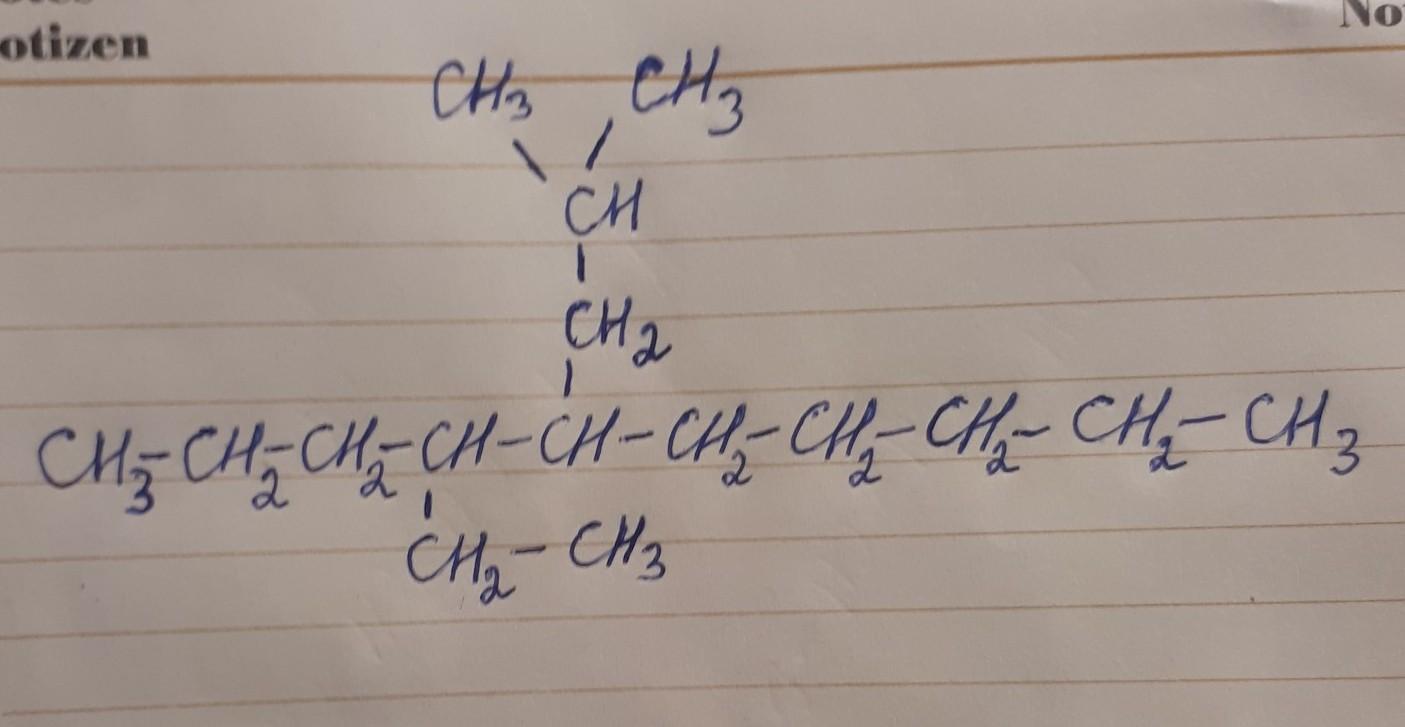 otizen
No
CH3 CH3
\ /
CH
|
CH2
|
CH3-CH2-CH2-CH-CH-CH2-CH2-CH2-CH2-CH3
|
CH2-CH3